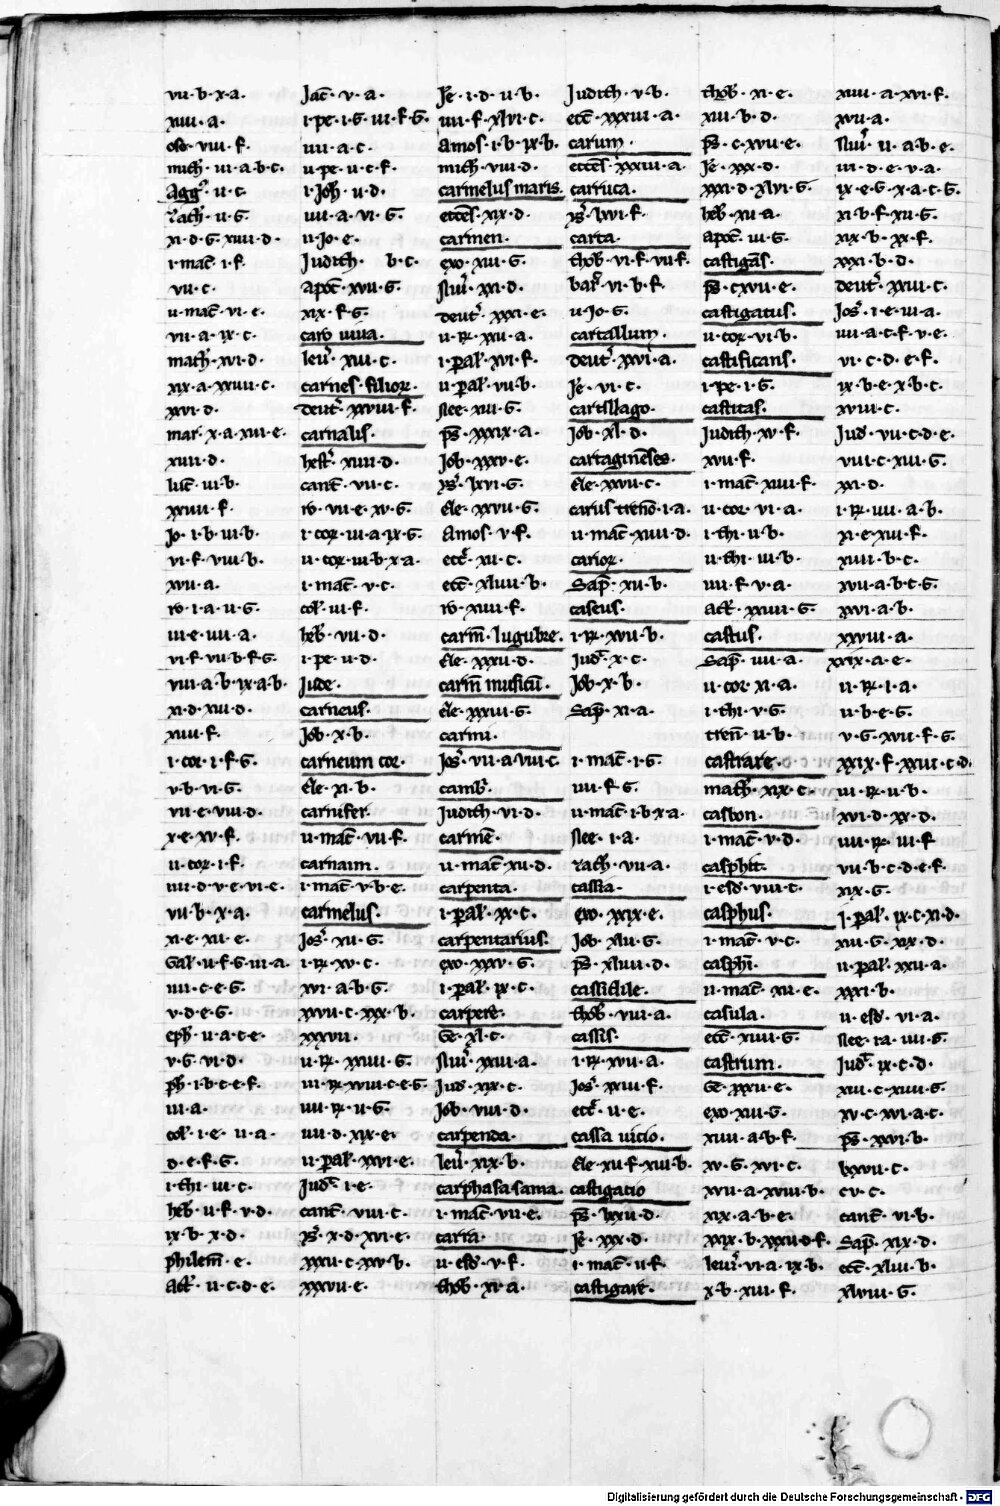 vii·b·x·a·
xiii·a·
ose·viii·f·
mich·vi·a·b·c·
Agg·ii·c·
zach·ii·g·
xi·d·g·xiiii·d·
i·mac̄·i·f·
vii·c·
ii·mac̄·vi·e·
vii·a·ix·c·
math·xvi·d·
xix·a·xxiiii·c·
xxvi·d·
mar·x·a·xiii·e·
xiiii·d·
luc̄·iii·b·
xxiiii·f·
Jo·i·b·iii·b·
vi·f·viii·b·
xvii·a·
ro·i·a·ii·g·
iii·e·iiii·a·
vi·f·vii·b·f·g·
viii·a·b·ix·a·b·
xi·d·xiii·d·
xiiii·f·
i·cor·i·f·g·
v·b·vi·g·
vii·e·viii·d·
x·e·xv·f·
ii·cor·i·f·
iiii·d·v·e·vi·e·
vii·b·x·a·
xi·e·xii·e·
Gal·ii·f·g·iii·a·
iiii·c·e·g·
v·d·e·g·
eph·ii·a·c·e·
v·g·vi·d·
ph·i·b·c·e·f·
iii·a·
col·i·e·ii·a·
d·e·f·g·
i·thi·iii·c·
heb·ii·f·v·d·
ix·b·x·d·
philem̄·e·
act·ii·c·d·e·
Jac̄·v·a·
i·pe·i·g·iii·f·g·
iiii·a·c·
ii·pe·ii·c·f·
i·Joh·ii·d·
iiii·a·vi·g·
ii·Jo·e·
Judith b·c·
apoc̄·xvii·g·
xix·f·g·
caro viva·
leu·xiii·c·
carnes filior·
deut·xxviii·f·
carnalis·
hest·xiiii·d·
cant̄·vii·c·
ro·vii·e·xv·g·
i·cor·iii·a·ix·g·
ii·cor·iii·b·x·a·
i·mac̄·v·c·
col·iii·f·
heb·vii·d·
i·pe·ii·d·
Jude·
carneus·
Job·x·b·
carneum cor·
Ele·xi·b·
carnifex·
ii·mac̄·vii·f·
carnaim·
i·mac̄·v·b·e·
carmelus·
Jos·xii·g·
i·R·xv·c·
xvi·a·b·g·
xxvii·c·xxx·b·
xxxvii·
ii·R·xxiii·g·
iii·R·xviii·c·e·g·
iiii·R·ii·g·
iiii·d·xix·e·
ii·pal·xxvi·e·
Jud·i·e·
cant̄·viii·c·
ys·x·d·xvi·e·
xxxii·c·xxv·b·
xxxvii·e·
Je·i·d·ii·b·
iiii·f·xlvi·c·
Amos·i·b·ix·b·
mich·viii·d·
carmelus maris·
eccēs·xix·d·
carmen·
exo·xiii·g·
Nui·xxi·d·
deut·xxxi·e·
ii·R·xxii·a·
i·pal·xvi·f·
ii·pal·vii·b·
Nee·xiii·g·
ps·xxxix·a·
Job·xxxv·e·
ys·lxvi·g·
Ele·xxvii·g·
Amos·v·f·
ecc̄·xii·c·
ecc̄·xliiii·b·
ro·xiiii·f·
carm̄·lugubre·
Ele·xxxii·d·
carm̄ musicū·
Ele·xxxiii·g·
carmi·
Jos·vii·a·viii·c·
camb·
Judith·vi·d·
carmē·
ii·mac̄·xii·d·
carpenta·
i·pal·xx·c·
carpentarius·
exo·xxxv·g·
i·pal·ix·c·
carpere·
Ge·xl·c·
Nui·xxii·a·
Jud·xix·c·
Job·viii·d·
carpenda·
leu·xix·b·
carphasa sama·
i·mac̄·vii·e·
carra·
ii·esd·v·f·
thob·xi·a·
Judith·v·b·
ecc̄·xxiii·a·
carum·
eccēs·xxiii·a·
carruca·
ys·lxvi·f·
carta·
thob·vi·f·vii·f·
bar·vi·b·f·
ii·Jo·g·
cartallum·
deut·xxvi·a·
Je·vi·c·
cartillago·
Job·xl·d·
cartaginēses·
Ele·xxvii·c·
carus trenō·i·a·
ii·mac̄·xiiii·d·
carior·
Sap·xii·b·
caseus·
i·R·xvii·b·
Jud·x·c·
Job·x·b·
Sap·xi·a·
i·mac̄·i·g·
iiii·f·g·
ii·mac̄·i·b·x·a·
Nee·i·a·
zach·vii·a·
cassia·
exo·xxix·e·
Job·xlii·g·
ps·xliiii·d·
cassidile·
thob·viii·a·
cassis·
i·R·xvii·a·
Jos·xxiii·f·
ecc̄·ii·e·
cassa vicio·
Ele·xii·f·xiii·b·
castigatio
ps·lxxii·d·
Je·xxx·d·
i·mac̄·ii·f·
castigare·
thob·xi·e·
xiii·b·d·
ps·c·xvii·e·
Je·xxx·d·
xxxi·d·xlvi·g·
heb·xii·a·
apoc̄·iii·g·
castigās·
ps·cxvii·e·
castigatus·
ii·cor·vi·b·
castificans·
i·pe·i·g·
castitas·
Judith·xv·f·
xvii·f·
i·mac̄·xiiii·f·
ii·cor·vi·a·
i·thi·ii·b·
ii·thi·iii·b·
iiii·f·v·a·
act·xxiiii·g·
castus·
Sap·iiii·a·
ii·cor·xi·a·
i·thi·v·g·
tren̄·ii·b·
castrare·
math·xix·c·
casbon·
i·mac̄·v·d·
casphit·
i·esd·viii·c·
casphus·
i·mac̄·v·c·
casphī·
ii·mac̄·xii·e·
casula·
ecc̄·xiiii·g·
castrum·
Ge·xxxii·e·
exo·xiii·g·
xiiii·a·b·f·
xv·g·xvi·c·
xvii·a·xviii·b·
xix·a·b·e·
xxix·b·xxxii·d·f·
leui·vi·a·ix·b·
x·b·xiii·f·
xiiii·a·xvi·f·
xvii·a·
Nui·ii·a·b·e·
iii·d·e·v·a·
ix·e·g·x·a·c·g·
xi·b·f·xii·g·
xix·b·xx·f·
xxxi·b·d·
deut·xxiii·c·
Jos·i·e·iii·a·
iiii·a·c·f·v·e·
vi·c·d·e·f·
ix·b·e·x·b·c·
xviii·c·
Jud·vii·c·d·e·
viii·c·xiii·g·
xxi·d·
i·R·iiii·a·b·
xi·e·xiii·f·
xiiii·b·c·
xvii·a·b·c·g·
xxvi·a·b·
xxviii·a·
xxix·a·e·
ii·R·i·a·
ii·b·e·g·
v·g·xvii·f·g·
xxix·f·xxiii·c·d·
iii·R·ii·b·
xvi·d·xx·d·
iiii·R·iii·f·
vii·b·c·d·e·f·
xix·g·
i·pal·ix·c·xi·d·
xiii·g·xix·d·
ii·pal·xxii·a·
xxxi·b·
ii·esd·vi·a·
Nee·i·a·iiii·g·
Jud·ix·c·d·
xiii·c·xiiii·g·
xv·c·xvi·a·c·
ps·xxvi·b·
lxxvii·c·
cv·c·
cant̄·vi·b·
Sap·xix·d·
ecc̄·xliii·b·
xlviii·g·
Digitalisierung gefördert durch die Deutsche Forschungsgemeinschaft - DFG